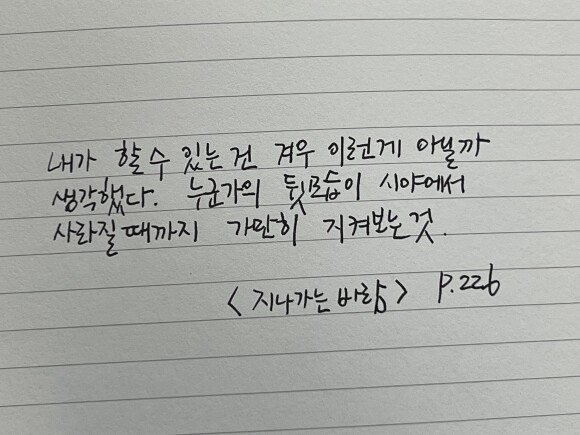 내가 할 수 있는 건 겨우 이런게 아닐까
생각했다. 누군가의 뒷모습이 시야에서
사라질 때까지 가만히 지켜보는 것.
< 지나가는 바람 > p.226